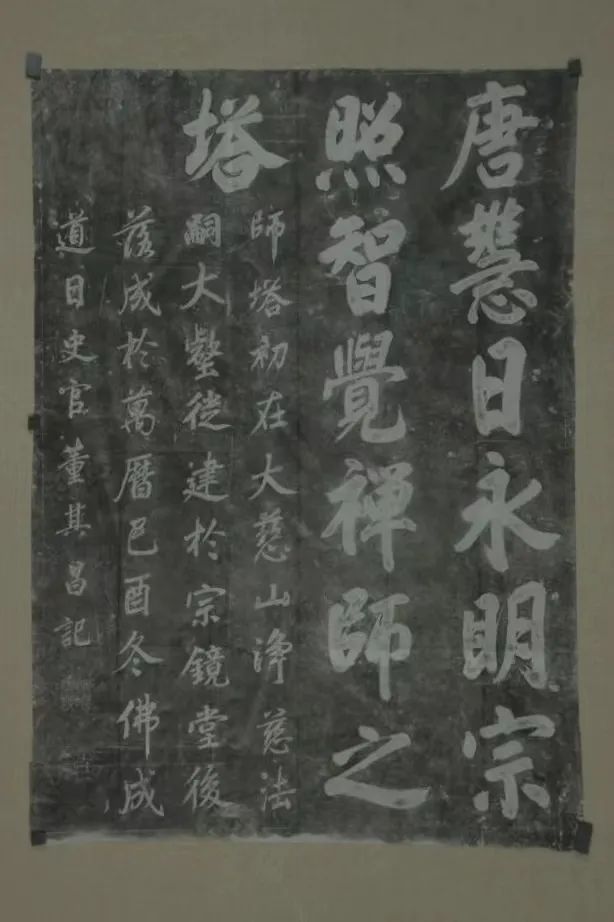 唐慧日永明宗
照智覺禅師之
塔
師塔初在大慈山淨慈法
嗣大壑徙建於宗鏡堂後
落成於萬曆己酉冬佛成
道日史官董其昌記